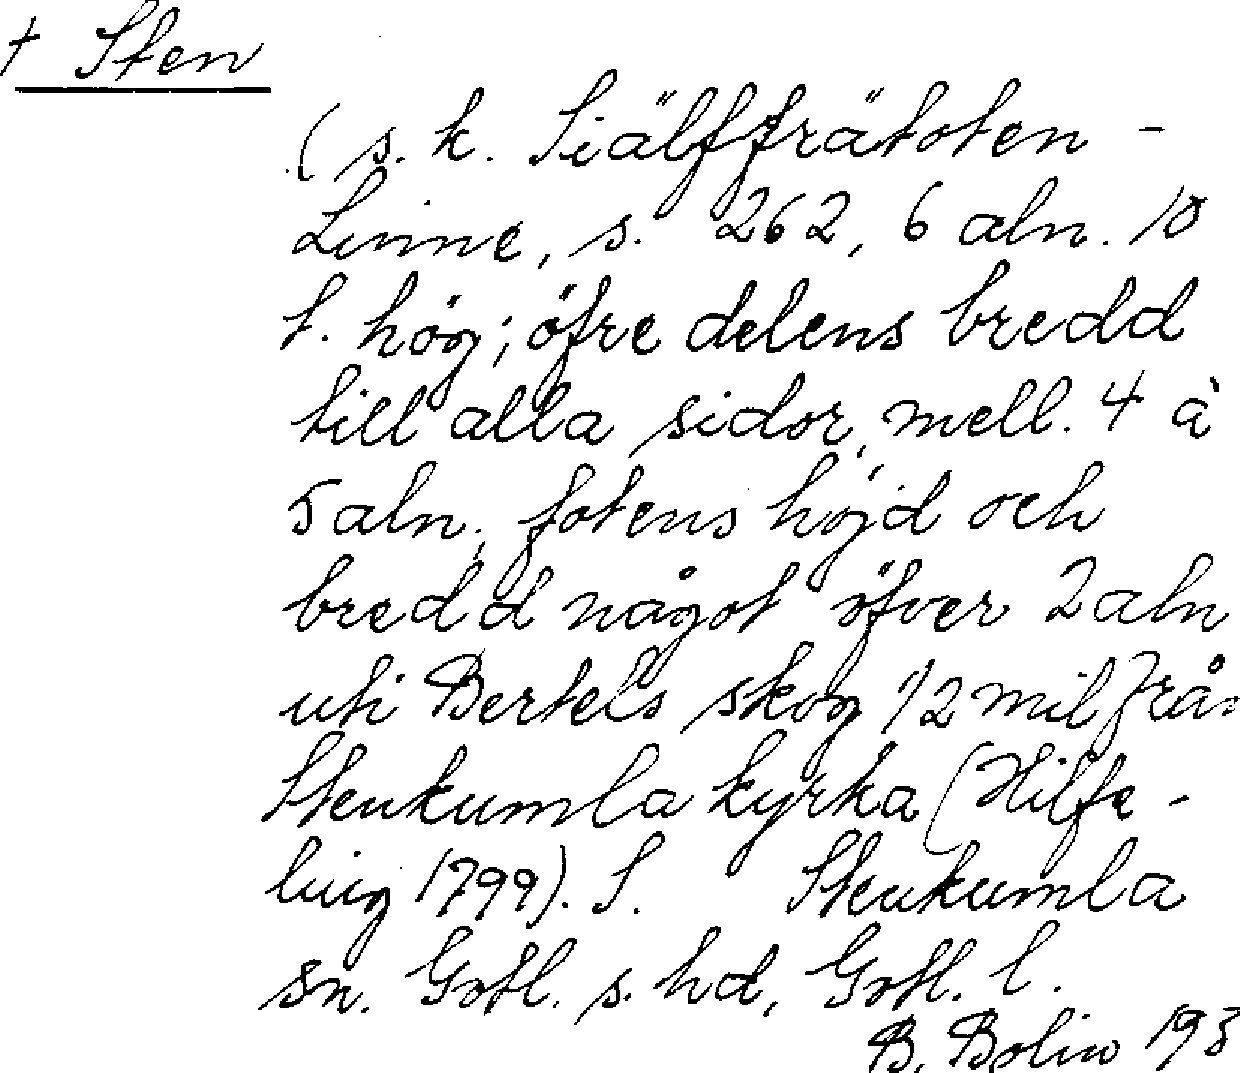 † Sten
(s.k. Siälffrätoten -
Linne, s. 262, 6 aln. 10
t. hög; öfre delens bredd
till alla sidor, mell. 4 à
5 aln.; fotens höjd och
bredd något öfver 2 aln
uti Bertels skog 1/2 mil från
Stenkumla kyrka (Hilfe-
ling 1799). S. Stenkumla
sn. Gotl. s. hd, Gotl. l.
B. Bolin 193